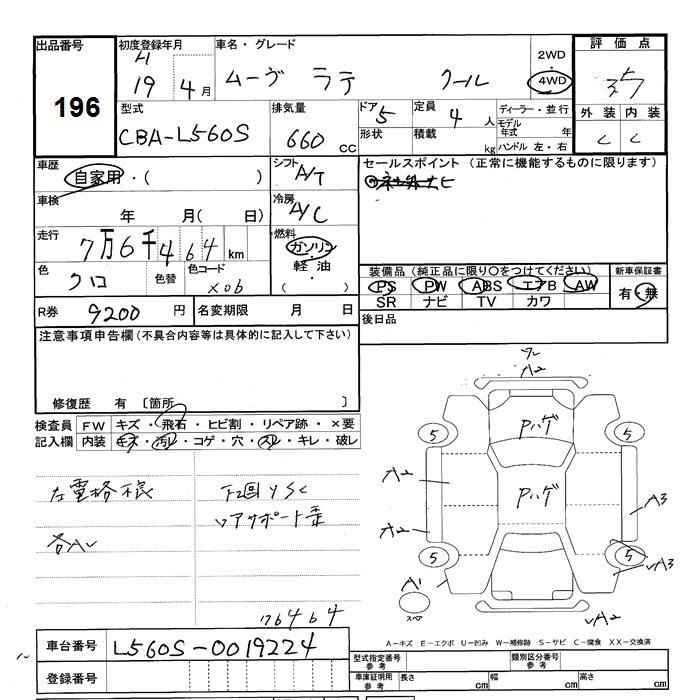 出品番号 196
初度登録年月 H 19 年 4 月
車名・グレード ムーヴ ラテ クール
2WD 4WD
評価点 3.5
外装 C 内装 C
型式 CBA-L560S
排気量 660 CC
ドア 5 形状
定員 4 人 積載 kg
ディーラー・並行
モデル年式 年
ハンドル 左・右
車歴 自家用・( )
車検 年 月( 日)
走行 7万6千464 km
色 クロ 色替 色コード X06
シフト A/T
冷房 A/C
燃料 ガソリン・軽油・( )
セールスポイント (正常に機能するものに限ります)
装備品 (純正品に限り○をつけてください)
PS PW ABS エアB AW
SR ナビ TV カワ
新車保証書 有・無
後日品
R券 9200 円 名変期限 月 日
注意事項申告欄 (不具合内容等は具体的に記入して下さい)
修復歴 有 〔箇所 〕
検査員記入欄 FW キズ・飛石・ヒビ割・リペア跡・×要
内装 キズ・汚レ・コゲ・穴・スレ・キレ・破レ
左電格不良
各AU
下回りSC
リアサポート歪
76464
フレ
A2
Pハゲ
5 5
A2
Pハゲ
A3
A2
5 5
A3
A1
スペア
A2
A-キズ E-エクボ U-凹み W-補修跡 S-サビ C-腐食 XX-交換済
車台番号 L560S-0019224
登録番号
型式指定番号 参考 類別区分番号 参考
車庫証明用 参考 長さ cm 幅 cm 高さ cm